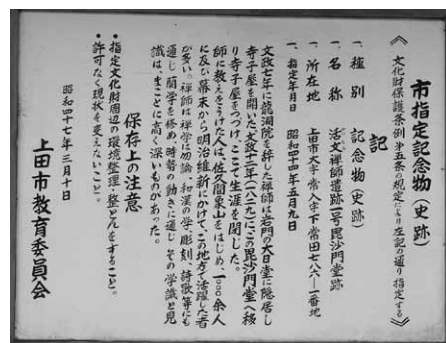 市指定記念物(史跡)
《文化財保護条例第五条の規定により左記の通り指定する》
記
一、種別 記念物(史跡)
一、名称 活文禅師遺跡二号毘沙門堂跡
一、所在地 上田市大字常入字下常田七八六一一番地
一、指定年月日 昭和四十四年五月九日
文政七年に龍洞院を辞した禅師は岩門の大日堂に隠居し
寺子屋を開いた。文政十二年(一八二九)にこの毘沙門堂へ移
り寺子屋をつづけ、ここで生涯を閉じた。
師に教えをうけた人は、佐久間象山をはじめ、一、〇〇〇余人
に及び幕末から明治維新にかけて、この地方で活躍した者
が多い。禅師は禅学は勿論、和漢の学、彫刻、詩歌等にも
通じ蘭学を修め、時勢の動きに通じその学識と見
識は、まことに高く深いものがあった。
保存上の注意
・指定文化財周辺の環境整理・整とんをすること。
・許可なく現状を変えないこと。
昭和四十七年三月十日
上田市教育委員会